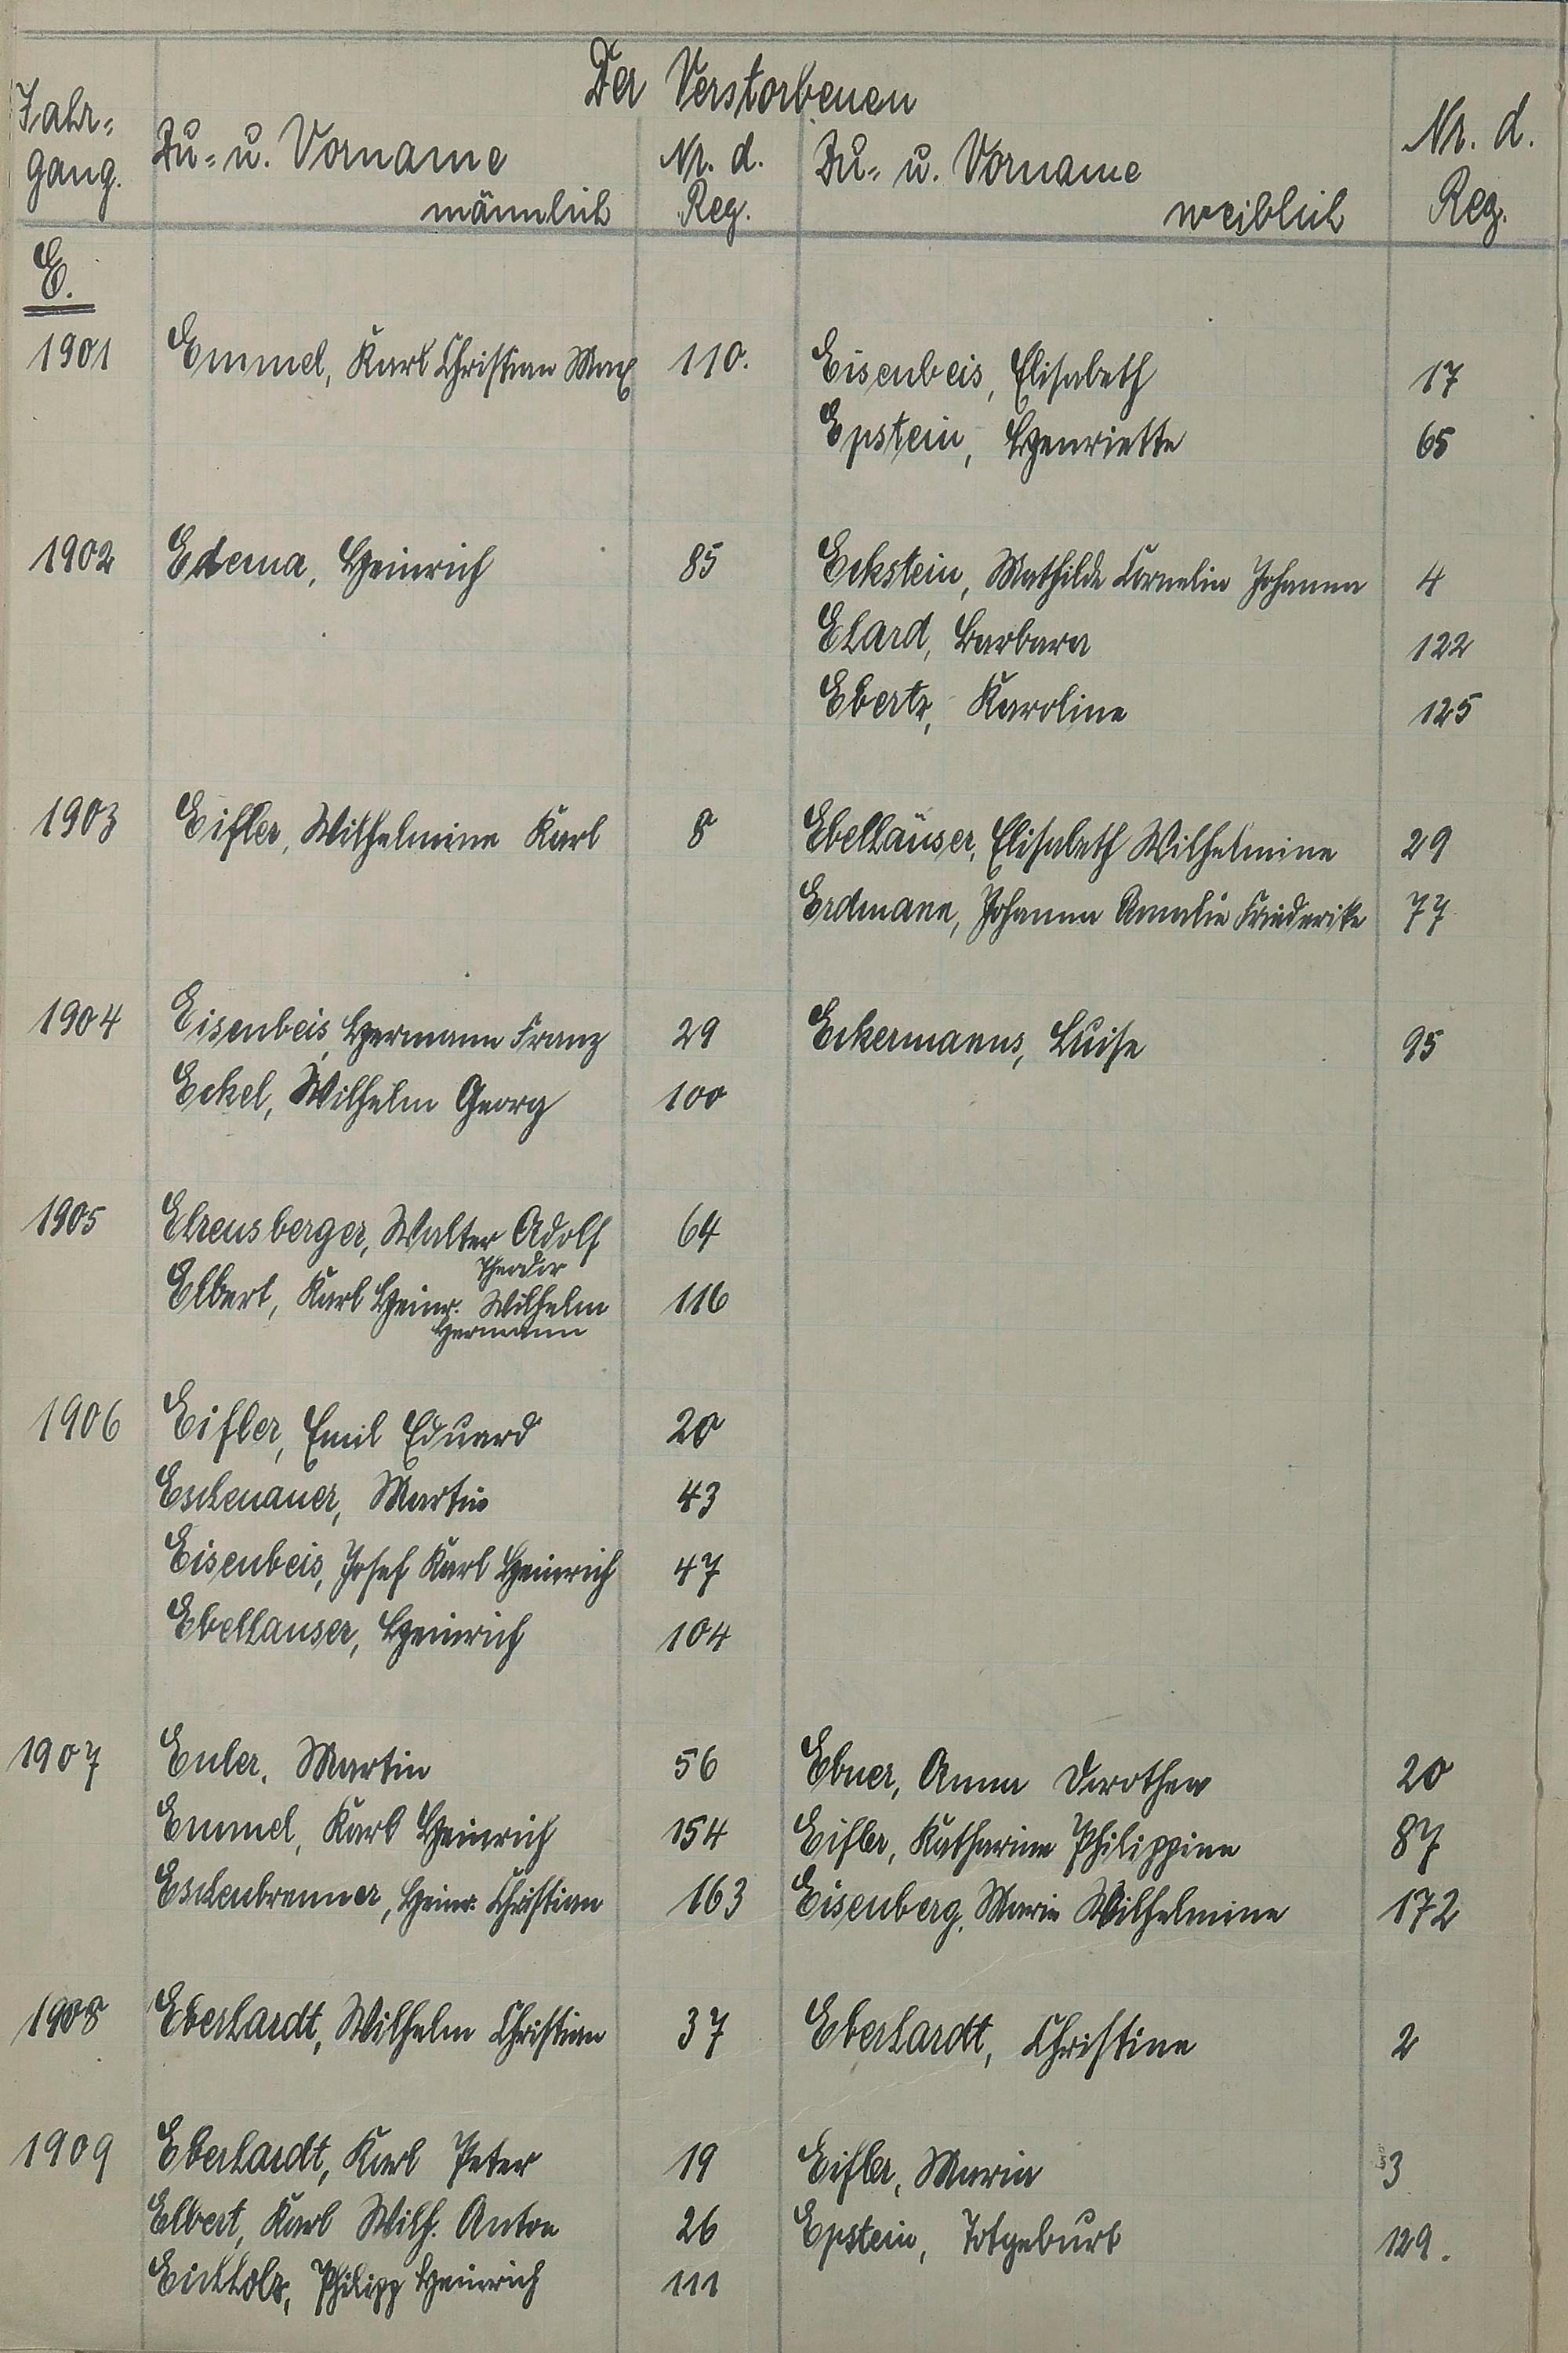 Der Verstorbenen
Jahr=
gang.
Zu= u. Vorname
männlich
Nr. d.
Reg.
Zu= u. Vorname
weiblich
Nr. d.
Reg.
E.
1901 Emmel, Karl Christian Max 110. Eisenbeis, Elisabeth 17
Epstein, Henriette 65
1902 Edema, Heinrich 85 Eckstein, Mathilde Cornelia Johanna 4
Ehard, Barbara 122
Ebertz, Karoline 125
1903 Eifler, Wilhelmine Karl 8 Ebelhäuser, Elisabeth Wilhelmine 29
Erdmann, Johanna Amalie Friederike 77
1904 Eisenbeis, Hermann Franz 29 Eckermanns, Luise 95
Eckel, Wilhelm Georg 100
1905 Ehrensberger, Walter Adolf 64
Theodor
Elbert, Karl Heinr. Wilhelm 116
Hermann
1906 Eifler, Emil Eduard 20
Eschenauer, Martin 43
Eisenbeis, Josef Karl Heinrich 47
Ebelhauser, Heinrich 104
1907 Euler, Martin 56 Ebner, Anna Dorothea 20
Emmel, Karl Heinrich 154 Eifler, Katharina Philippine 87
Eschenbrenner, Heinr. Christian 163 Eisenberg, Marie Wilhelmine 172
1908 Eberhardt, Wilhelm Christian 37 Eberhardt, Christine 2
1909 Eberhardt, Karl Peter 19 Eifler, Maria 3
Elbert, Karl Wilh. Anton 26 Epstein, Totgeburt 129.
Eichholz, Philipp Heinrich 111